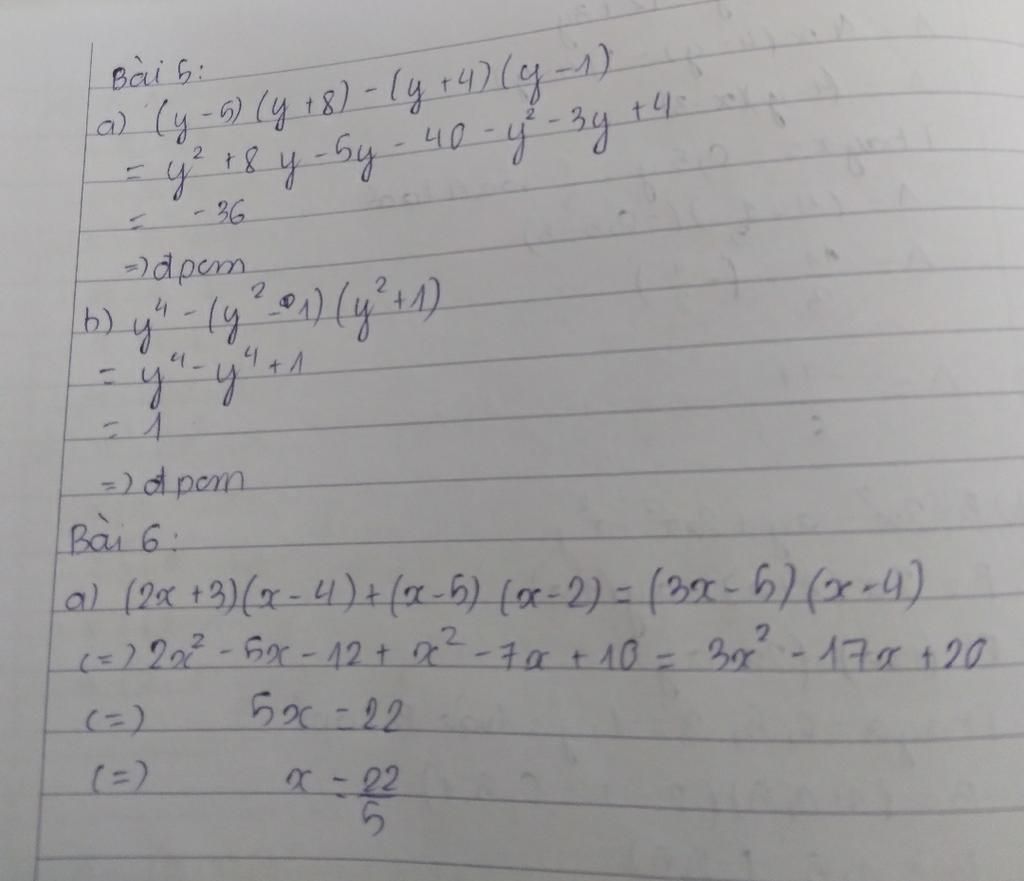 Bài 5:
a) (y - 5) (y + 8) - (y + 4) (y - 1)
= y² + 8y - 5y - 40 - y² - 3y + 4
= -36
=) đpcm
b) y⁴ - (y² - 1) (y² + 1)
= y⁴ - y⁴ + 1
= 1
=) đpcm
Bài 6:
a) (2x + 3)(x - 4) + (x - 5) (x - 2) = (3x - 5) (x - 4)
(=) 2x² - 5x - 12 + x² - 7x + 10 = 3x² - 17x + 20
(=) 5x = 22
(=) x = 22/5